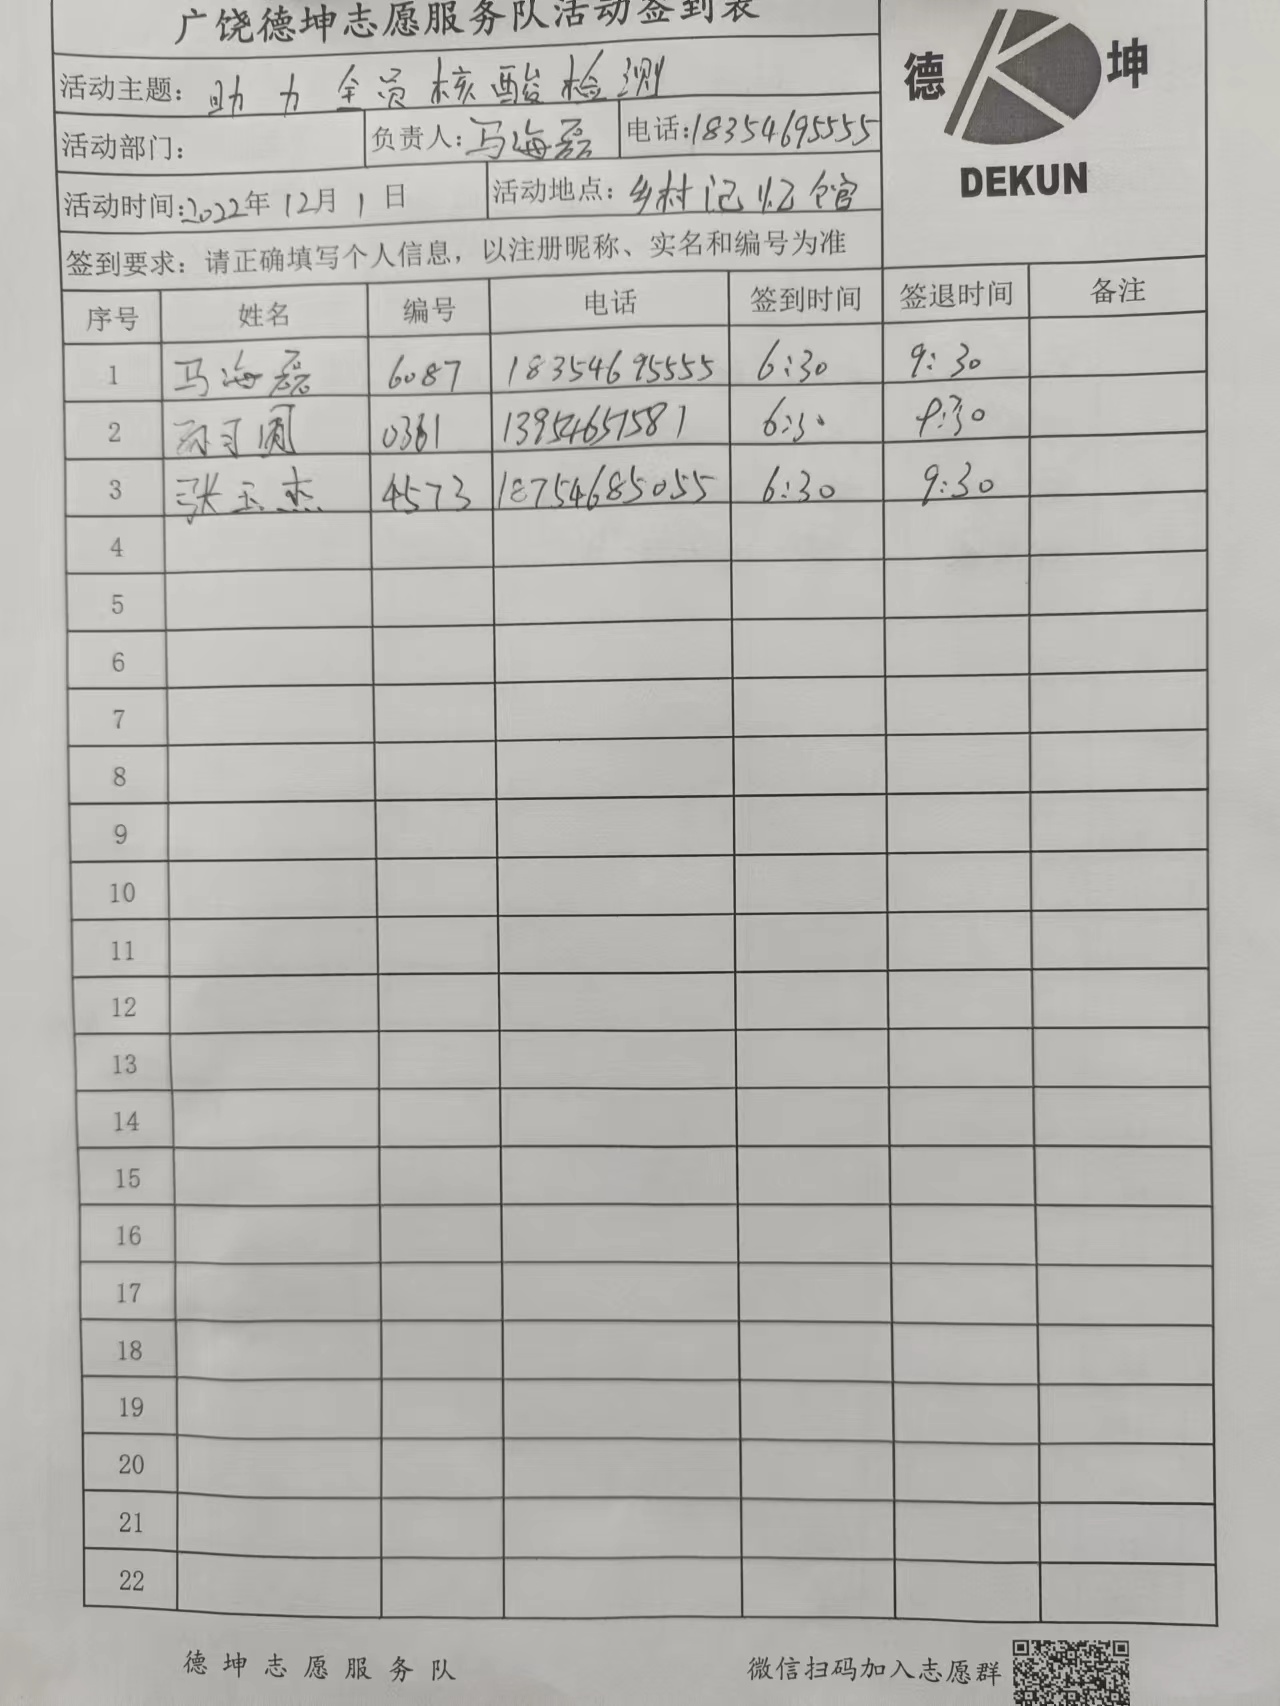 广饶德坤志愿服务队活动签到表
德 坤
DEKUN
活动主题: 助力全员核酸检测
活动部门: 负责人: 马海磊 电话: 18354695555
活动时间: 2022年12月1日 活动地点: 乡村记忆馆
签到要求: 请正确填写个人信息，以注册昵称、实名和编号为准
序号 姓名 编号 电话 签到时间 签退时间 备注
1 马海磊 6087 18354695555 6:30 9:30
2 0361 13954651581 6:30 9:30
3 张玉杰 4573 18754685055 6:30 9:30
4
5
6
7
8
9
10
11
12
13
14
15
16
17
18
19
20
21
22
德坤志愿服务队 微信扫码加入志愿群